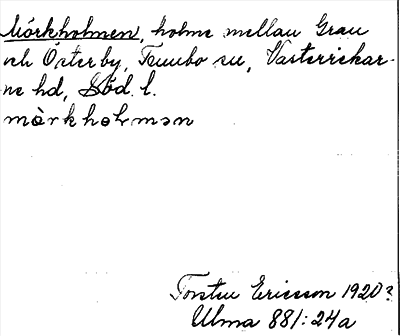 Mörkholmen, holme mellan Gran
och Österby, Tumbo sn, Västerrekar-
ne hd, Söd. l.
mö̀rkholmən
Torsten Ericsson 1920?
Ulma 881:24a